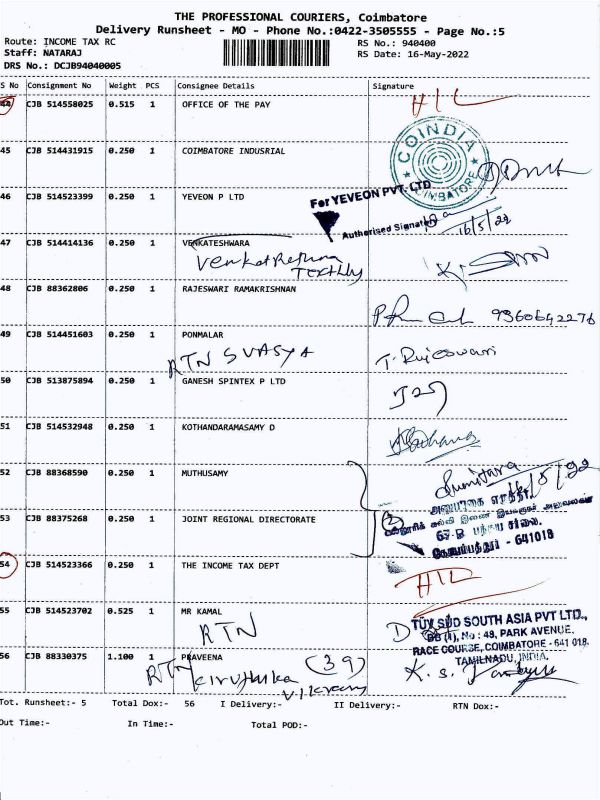 THE PROFESSIONAL COURIERS, Coimbatore
Delivery Runsheet - MO - Phone No.:0422-3505555 - Page No.:5
Route: INCOME TAX RC
RS No.: 940400
Staff: NATARAJ
RS Date: 16-May-2022
DRS No.: DCJB94040005
S No Consignment No Weight PCS Consignee Details Signature
44 CJB 514558025 0.515 1 OFFICE OF THE PAY
COINDIA
COIMBATORE
45 CJB 514431915 0.250 1 COIMBATORE INDUSRIAL
46 CJB 514523399 0.250 1 YEVEON P LTD
For YEVEON PVT. LTD
Authorised Signatory
16/5/22
47 CJB 514414136 0.250 1 VENKATESHWARA
48 CJB 88362806 0.250 1 RAJESWARI RAMAKRISHNAN
9360642276
49 CJB 514451603 0.250 1 PONMALAR
RTN SVASYA
T. Rajeswari
50 CJB 513875894 0.250 1 GANESH SPINTEX P LTD
51 CJB 514532948 0.250 1 KOTHANDARAMASAMY D
52 CJB 88368590 0.250 1 MUTHUSAMY
53 CJB 88375268 0.250 1 JOINT REGIONAL DIRECTORATE
கோயம்புத்தூர் - 641018
54 CJB 514523366 0.250 1 THE INCOME TAX DEPT
55 CJB 514523702 0.525 1 MR KAMAL
RTN
TÜV SÜD SOUTH ASIA PVT LTD.,
No : 48, PARK AVENUE,
RACE COURSE, COIMBATORE - 641 018.
TAMILNADU, INDIA.
56 CJB 88330375 1.100 1 PRAVEENA
RTN
(39)
Tot. Runsheet:- 5 Total Dox:- 56 I Delivery:- II Delivery:- RTN Dox:-
Out Time:- In Time:- Total POD:-